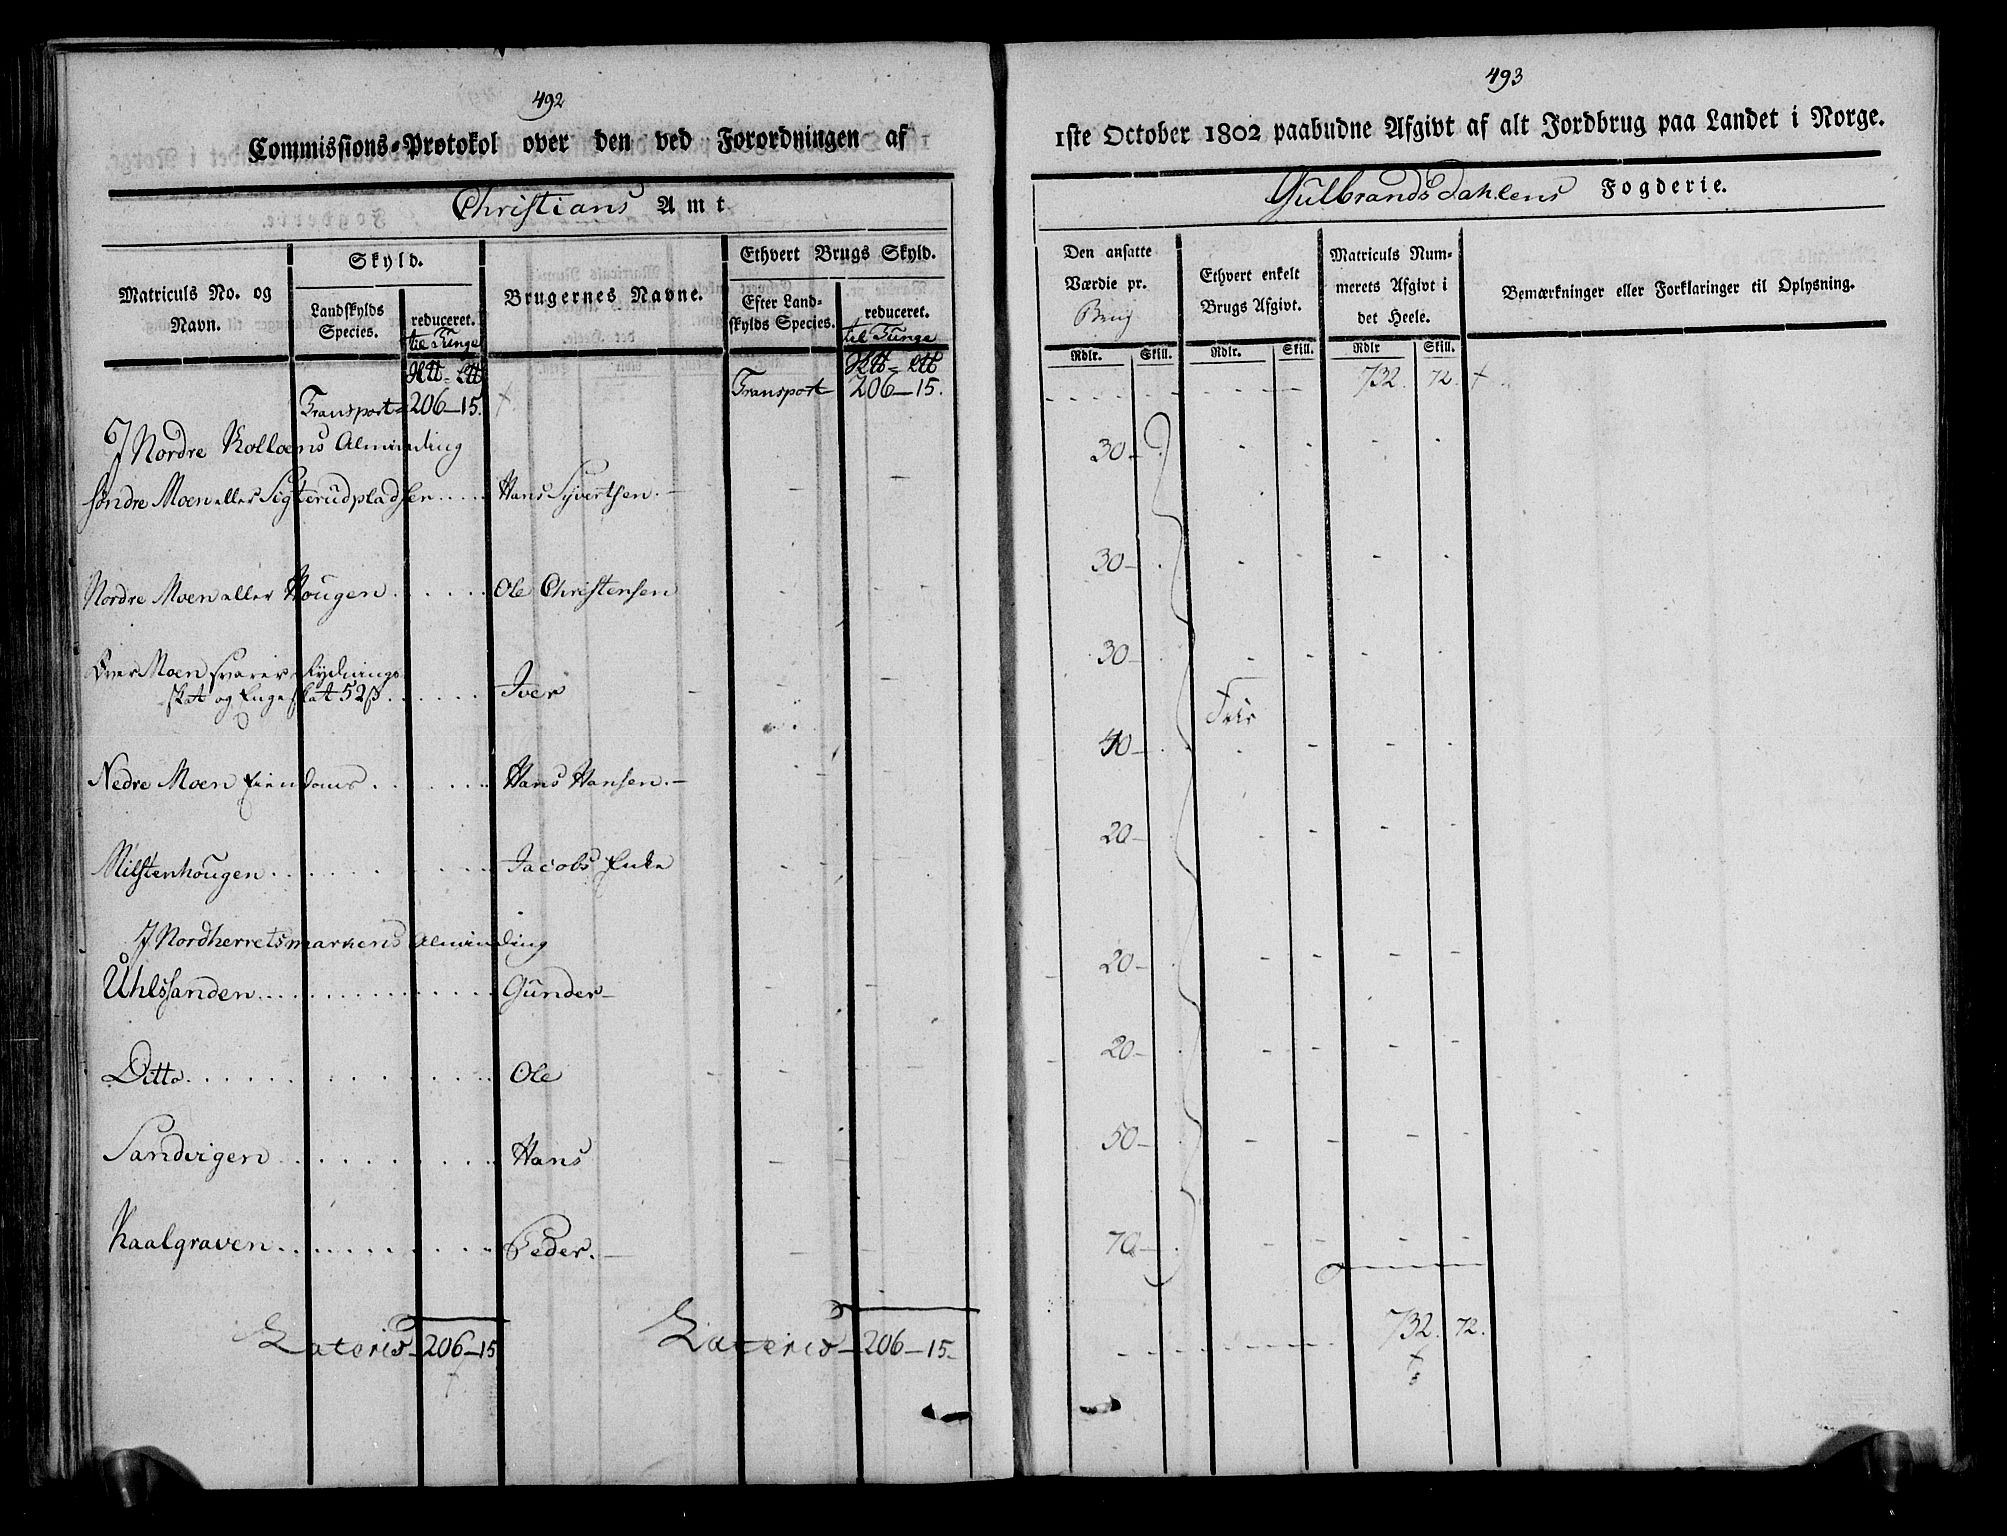 492
Commissions-Protokol over den ved Forordningen af
Christians Amt
Matriculs No. og
Navn.
Skyld.
Landskylds
Species.
reduceret.
til Tunge
Brugernes Navne.
Ethvert Brugs Skyld.
Efter Land-
skylds Species.
reduceret.
til Tunge
Transport 206-15.
Transport 206-15.
I Nordre Kolloens Alminding
Søndre Moen eller Sigterudpladsen..... Hans Syvertsen.-
Nordre Moen eller Hougen...... Ole Christensen
Øver Moen svarer Rydnings
skat og Engeskat 52ß...... Iver
Nedre Moen Eiendoms...... Hans Hansen.-
Milstenhougen.......... Jacobs Enke
I Nordherretsmarkens Alminding
Uhlssanden.......... Gunder-
Ditto.......... Ole
Sandvigen.......... Hans
Kaalgraven.......... Peder.-
Lateris-206-15
Lateris-206-15-
493
1ste October 1802 paabudne Afgivt af alt Jordbrug paa Landet i Norge.
Gulbrandsdahlens Fogderie.
Den ansatte
Værdie pr.
Brug
Ethvert enkelt
Brugs Afgivt.
Matriculs Num-
merets Afgivt i
det Heele.
Bemærkninger eller Forklaringer til Oplysning.
Rdlr. Skill. Rdlr. Skill. Rdlr Skill.
732. 72.
30-
30-
30-
Frie
40-
20-
20-
20-
50-
70-
732. 72.